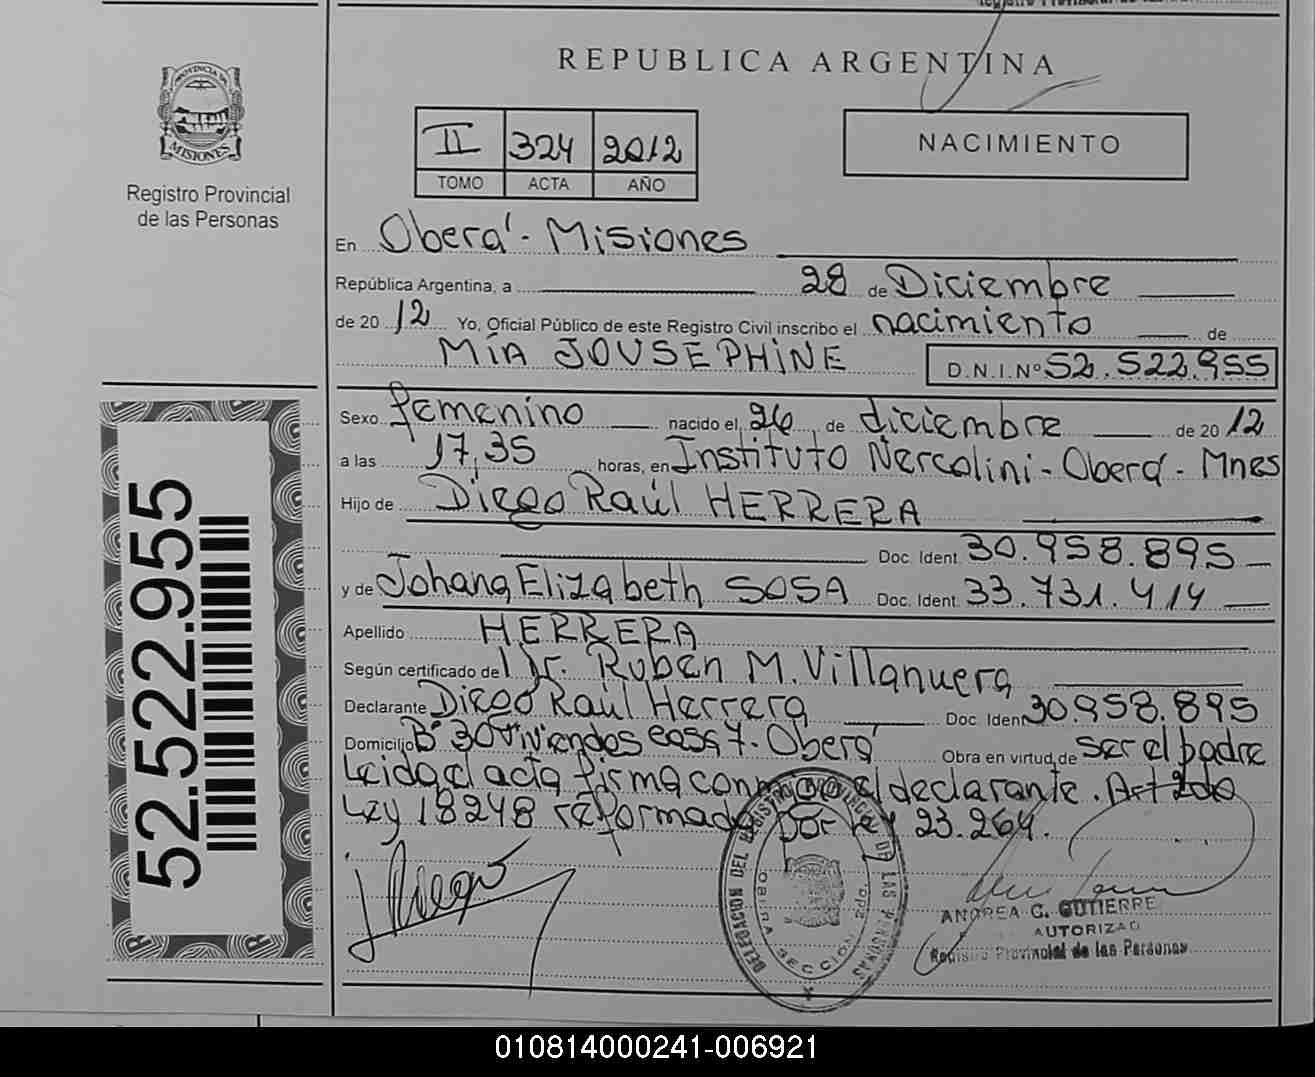 REPUBLICA ARGENTINA
PROVINCIA DE
MISIONES
Registro Provincial
de las Personas
II 324 2012
TOMO ACTA AÑO
NACIMIENTO
En Oberá - Misiones
República Argentina, a 28 de Diciembre
de 2012 Yo, Oficial Público de este Registro Civil inscribo el nacimiento de
MÍA JOUSEPHINE D.N.I.Nº 52.522.955
Sexo femenino nacido el 26 de diciembre de 2012
a las 17,35 horas, en Instituto Nercolini - Oberá - Mnes
Hijo de Diego Raúl HERRERA
Doc. Ident. 30.958.895
y de Johana Elizabeth SOSA Doc. Ident. 33.731.414
Apellido HERRERA
Según certificado del Dr. Ruben M. Villanuera
Declarante Diego Raúl Herrera Doc. Ident 30.958.895
Domicilio Bº 30 Viviendas casa 7 - Oberá Obra en virtud de ser el padre
Leida el acta firma conmigo el declarante. Art 2do
Ley 18248 reformado por ley 23.264.
DELEGACION DEL REGISTRO PROVINCIAL DE LAS PERSONAS
OBERA SECCION 2da.
ANDREA G. GUTIERRE
AUTORIZAD
Registro Provincial de las Personas
52.522.955
010814000241-006921